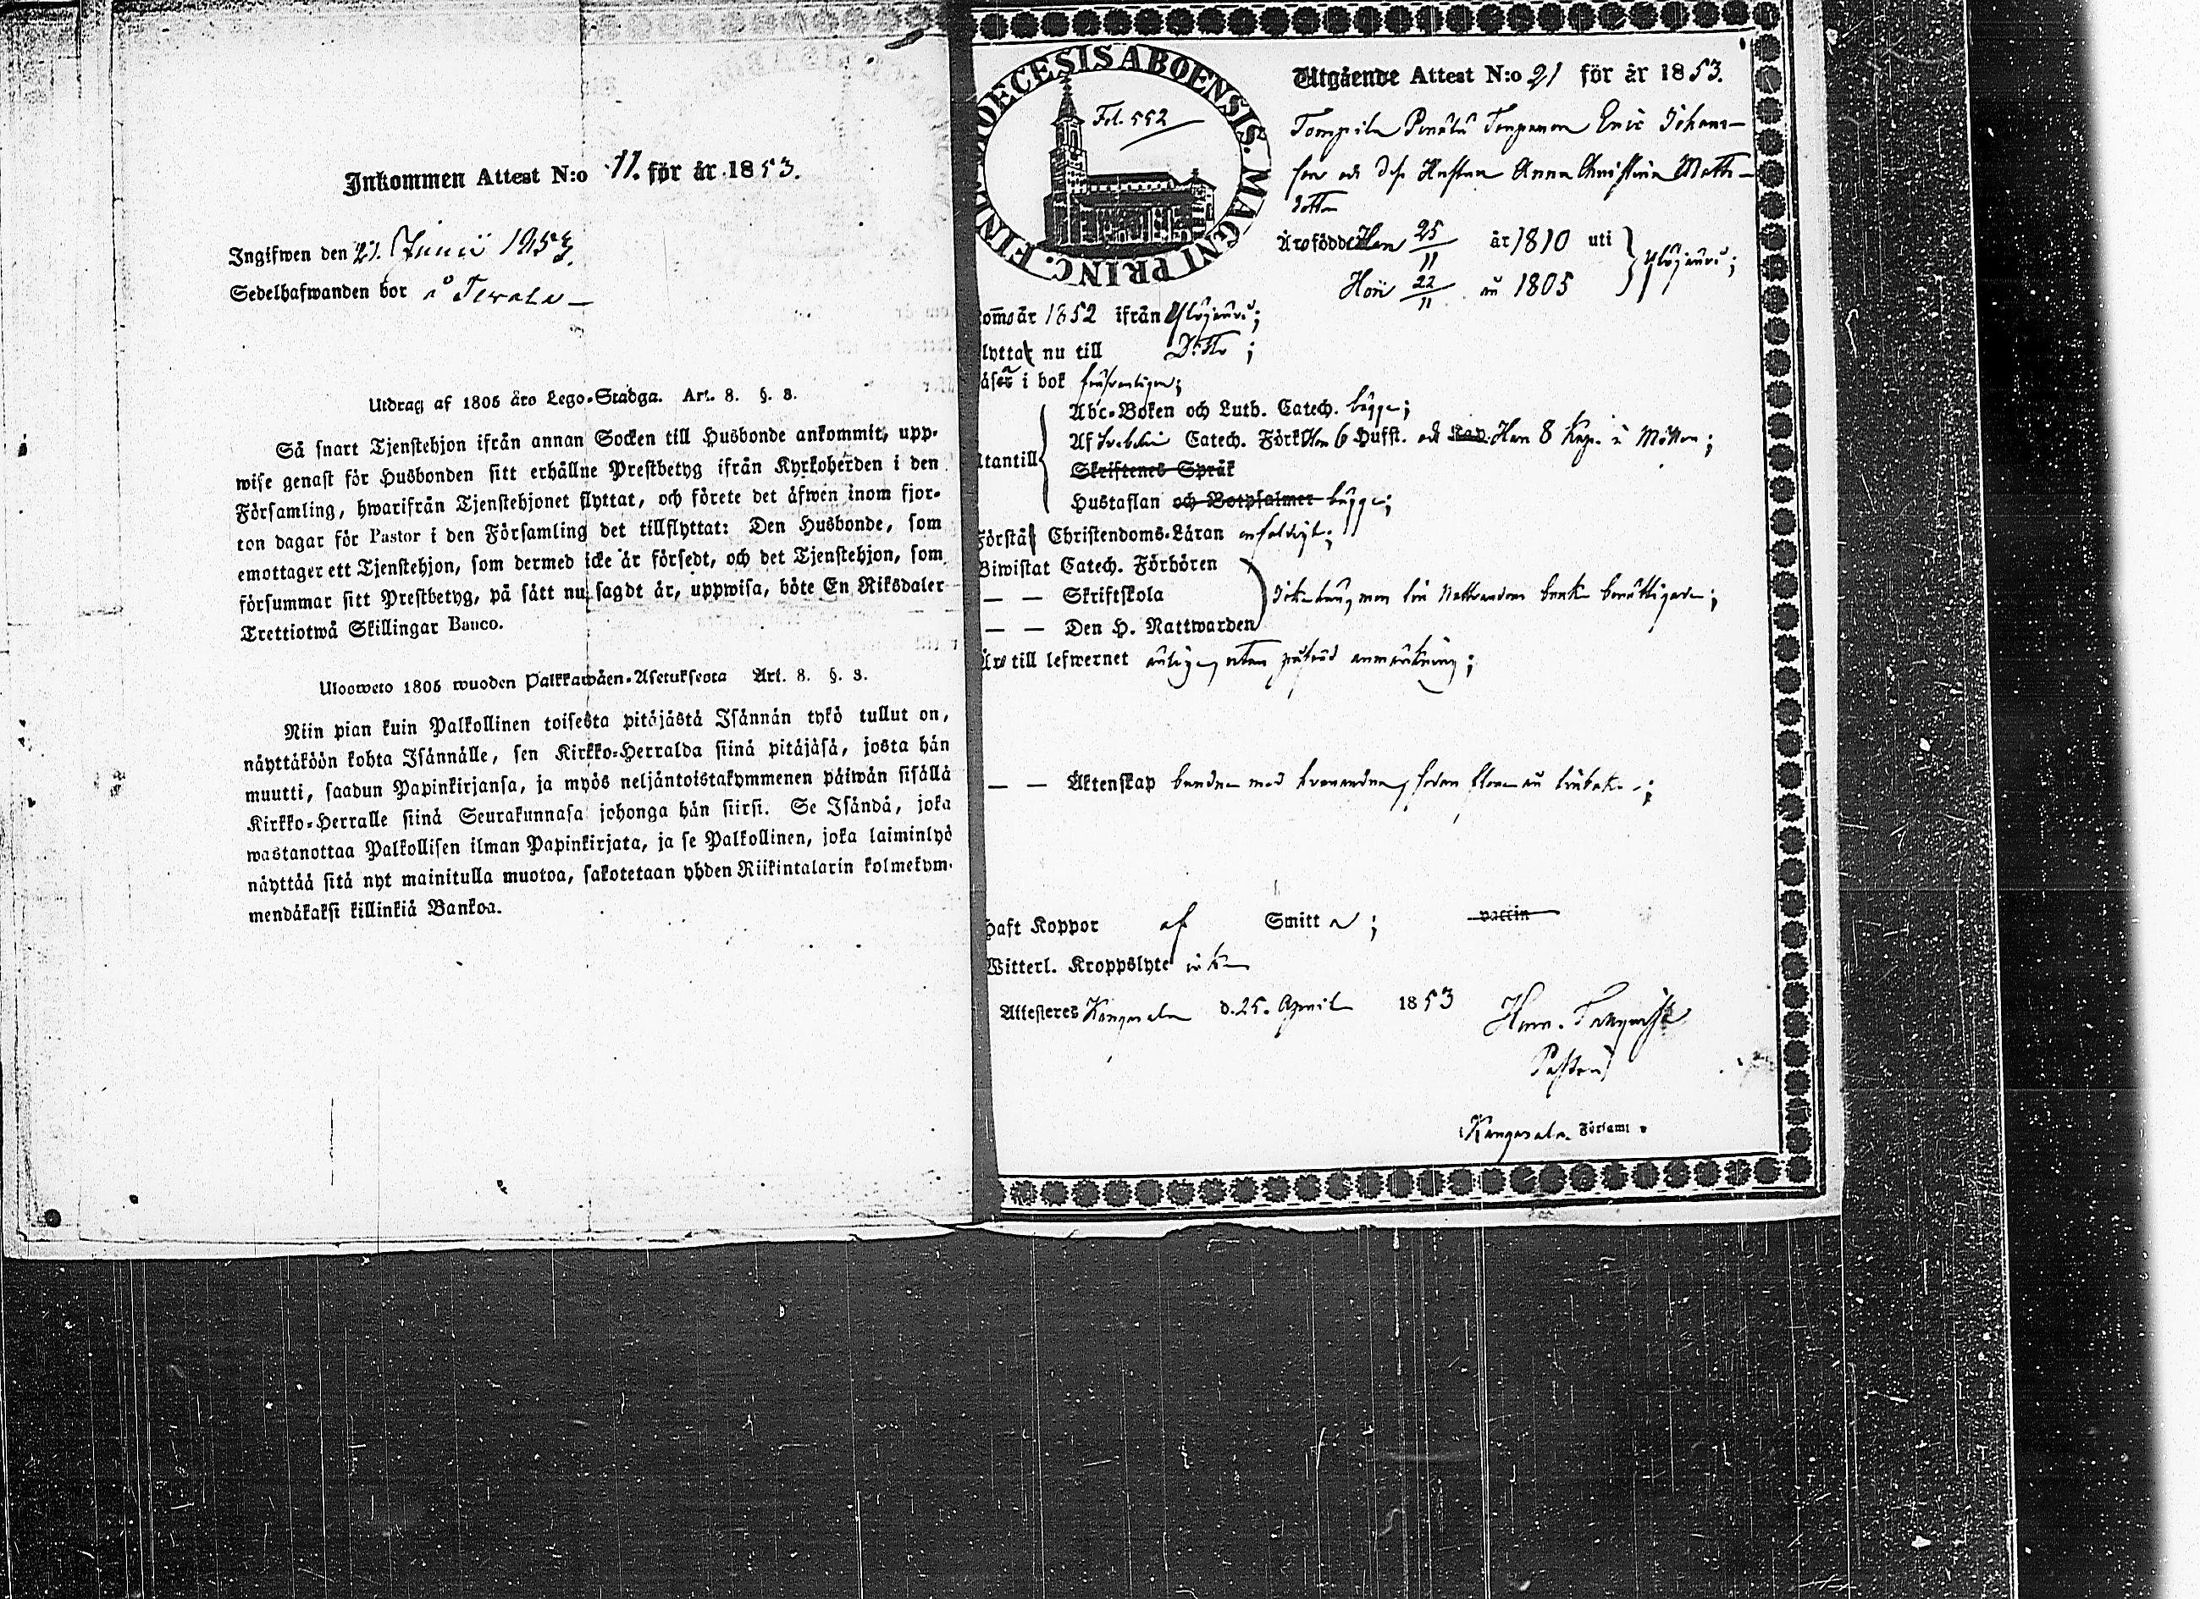 Inkommen Attest N:o 11. för år 1853.
Ingifwen den 21. Junii 1853.
Sedelhafwanden bor å
Utdrag af 1805 års Lego-Stadga. Art. 8. §. 8.
Så snart Tjenstehjon ifrån annan Socken till Husbonde ankommit, upp-
wise genast för Husbonden sitt erhållne Prestbetyg ifrån Kyrkoherden i den
Församling, hwarifrån Tjenstehjonet flyttat, och förete det åfwen inom fjor-
ton dagar för Pastor i den Församling det tillflyttat: Den Husbonde, som
emottager ett Tjenstehjon, som dermed icke är försedt, och det Tjenstehjon, som
försummar sitt Prestbetyg, på sätt nu sagdt är, uppwisa, böte En Riksdaler
Trettiotwå Skillingar Banco.
Ulosweto 1805 wuoden Palkkawäen-Asetuksesta Art. 8. §. 8.
Niin pian kuin Palkollinen toisesta pitäjästä Isännän tykö tullut on,
näyttäköön kohta Isännälle, sen Kirkko-Herralda siinä pitäjäsä, josta hän
muutti, saadun Papinkirjansa, ja myös neljäntoistakymmenen päiwän sisällä
Kirkko-Herralle siinä Seurakunnasa johonga hän siirsi. Se Isändä, joka
wastanottaa Palkollisen ilman Papinkirjata, ja se Palkollinen, joka laiminlyö
näyttää sitä nyt mainitulla muotoa, sakotetaan yhden Riikintalarin kolmekym-
mendäkaksi killinkiä Bankoa.
DIOECESIS ABOENSIS. MAGNI PRINC. FINL.
Fol. 552
Utgående Attest N:o 21 för år 1853.
Tompila Eric Johans-
son och dess Hustru Anna Christina Matts-
dotter
Äro födde Han 25/11 år 1810 uti Ylöjärvi;
Hon 22/11 år 1805
koms år 1852 ifrån Ylöjärvi;
flytta nu till Ditto;
läsa i bok försvarligen;
Utantill
Abc-Boken och Luth. Catech. bägge;
Af Svebelii Catech. Förkl. Hon 6 Hufst. och Han 8 Kap. i
Skriftenes Språk
Hustaflan och Botpsalmer bägge;
Förstå Christendoms-Läran enfaldigt;
Biwistat Catech. Förhören
— — Skriftskola
— — Den H. Nattwarden
Äro till lefwernet ärlige, utan anmärkning;
— — Äktenskap
Haft Koppor af Smitta;
vaccin
Witterl. Kroppslyte icke
Attesteres Kangasala d. 25. April 1853
Pastor
Kangasala Församl.